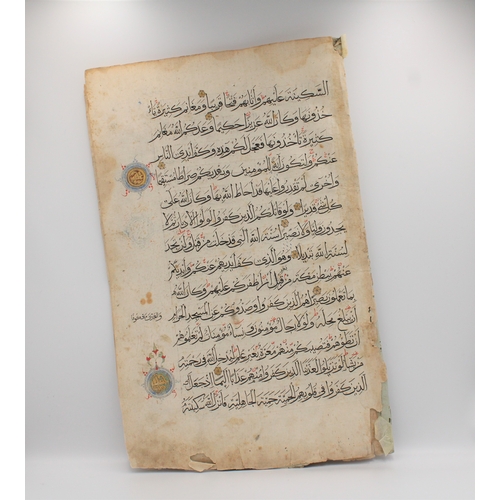 السكينة عليهم واثابهم فتحا قريبا ومغانم كثيرة يأ
خذونها وكان الله عزيزا حكيما وعدكم الله مغانم
كثيرة تأخذونها فعجل لكم هذه وكف ايدي الناس
عنكم ولتكون آية للمؤمنين ويهديكم صراطا مستقيما
واخرى لم تقدروا عليها قد احاط الله بها وكان الله على
كل شيء قديرا ولو قاتلكم الذين كفروا لولوا الادبار ثم لا
يجدون وليا ولا نصيرا سنة الله التي قد خلت من قبل ولن تجد
لسنة الله تبديلا وهو الذي كف ايديهم عنكم وايديكم
عنهم ببطن مكة من بعد ان اظفركم عليهم وكان الله
بما تعملون بصيرا هم الذين كفروا وصدوكم عن المسجد الحرام
والهدي معكوفا
ان يبلغ محله ولولا رجال مؤمنون ونساء مؤمنات لم تعلموهم
ان تطؤهم فتصيبكم منهم معرة بغير علم ليدخل الله في رحمته
من يشاء لو تزيلوا لعذبنا الذين كفروا منهم عذابا اليما اذ جعل
الذين كفروا في قلوبهم الحمية حمية الجاهلية فانزل الله سكينته